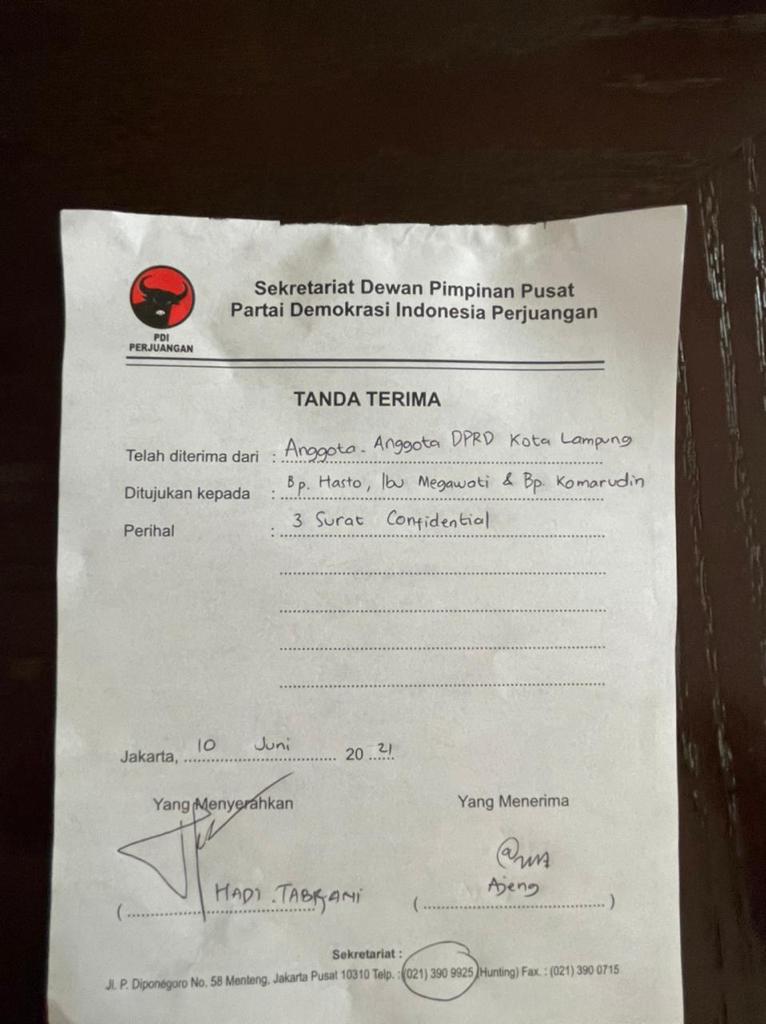 PDI
PERJUANGAN
Sekretariat Dewan Pimpinan Pusat
Partai Demokrasi Indonesia Perjuangan
TANDA TERIMA
Telah diterima dari : Anggota-Anggota DPRD Kota Lampung
Ditujukan kepada : Bp. Hasto, Ibu Megawati & Bp. Komarudin
Perihal : 3 Surat Confidential
Jakarta, 10 Juni 2021
Yang Menyerahkan Yang Menerima
(HADI .TABRANI (Ajeng)
Sekretariat :
Jl. P. Diponegoro No. 58 Menteng, Jakarta Pusat 10310 Telp. : (021) 390 9925 (Hunting) Fax. : (021) 390 0715